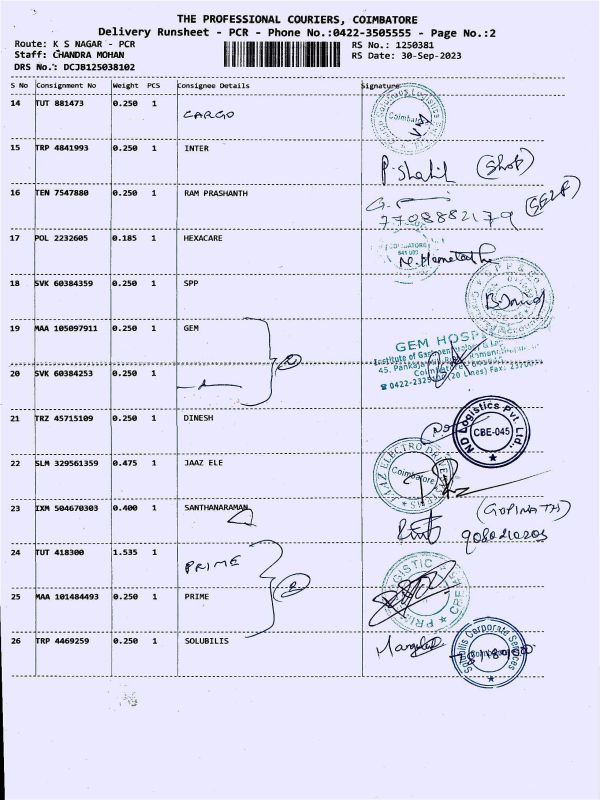 THE PROFESSIONAL COURIERS, COIMBATORE
Delivery Runsheet - PCR - Phone No.:0422-3505555 - Page No.:2
Route: K S NAGAR - PCR RS No.: 1250381
Staff: CHANDRA MOHAN RS Date: 30-Sep-2023
DRS No.: DCJB125038102
S No Consignment No Weight PCS Consignee Details Signature
14 TUT 881473 0.250 1 CARGO
Logistics
Coimbatore
15 TRP 4841993 0.250 1 INTER
(Shop)
16 TEN 7547880 0.250 1 RAM PRASHANTH
7708882179 (SELF)
17 POL 2232605 0.185 1 HEXACARE
18 SVK 60384359 0.250 1 SPP
SPP & Co
19 MAA 105097911 0.250 1 GEM
GEM HOSP
Institute of
20 SVK 60384253 0.250 1
0422-2325 (20 Lines) Fax:
21 TRZ 45715109 0.250 1 DINESH
ND Logistics Pvt. Ltd.,
CBE-045
22 SLM 329561359 0.475 1 JAAZ ELE
JAAZ ELECTRO DRIVE
Coimbatore
23 IXM 504670303 0.400 1 SANTHANARAMAN
(GOPINATH)
24 TUT 418300 1.535 1 PRIME
25 MAA 101484493 0.250 1 PRIME
26 TRP 4469259 0.250 1 SOLUBILIS
Solubilis Corporate Services